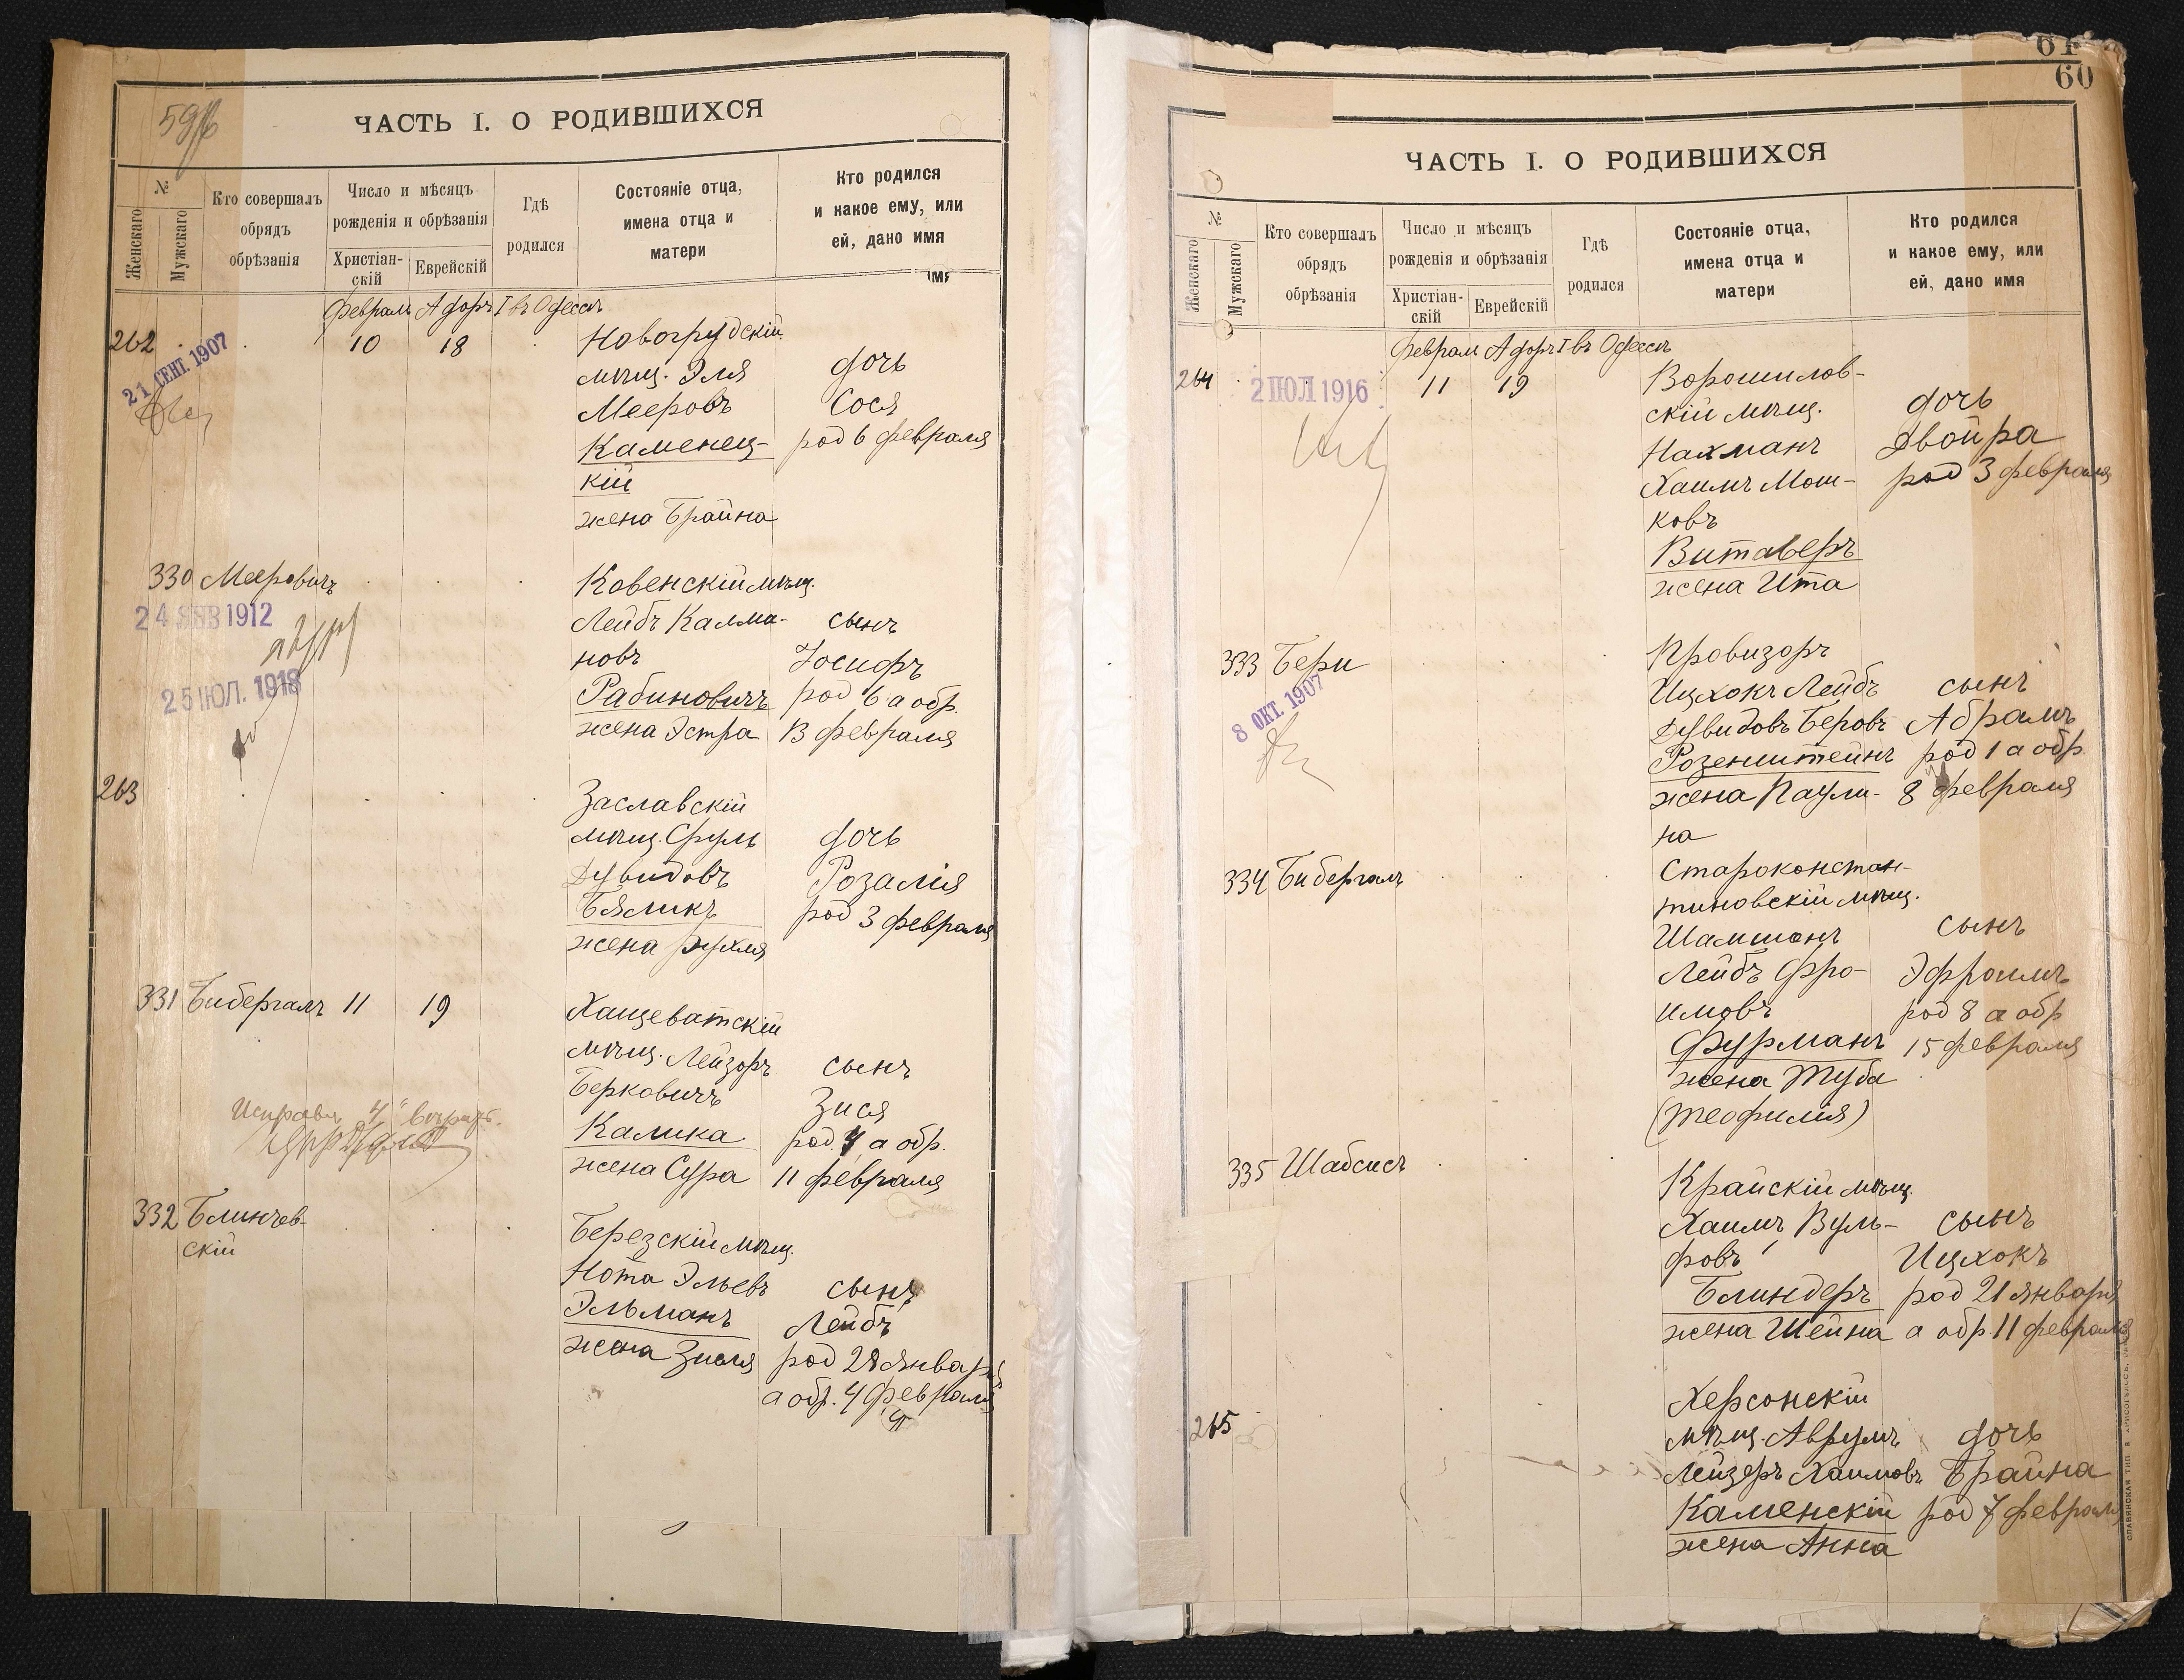 59
ЧАСТЬ I. О РОДИВШИХСЯ
№
Женскаго
Мужскаго
Кто совершалъ
обрядъ
обрѣзанія
Число и мѣсяцъ
рожденія и обрѣзанія
Христіан-
скій
Еврейскій
Гдѣ
родился
Состояніе отца,
имена отца и
матери
Кто родился
и какое ему, или
ей, дано имя
Февраль Адоръ I въ Одессѣ
262
10 18
21 СЕНТ. 1907
Новогрудскій
мѣщ. Эля
Мееровъ
Каменец-
кій
жена Брайна
дочь
Сося
род 6 февраля
330 Меровичъ
24 ЯНВ 1912
25 ІЮЛ. 1918
Ковенскій мѣщ.
Лейбъ Калма-
новъ
Рабиновичъ
жена Эстра
сынъ
Іосифъ
род 6 а обр.
13 февраля
263
Заславскій
мѣщ. Сруль
Дувидовъ
Бяликъ
жена Рухля
дочь
Розалія
род 3 февраля
331 Бибергалъ 11 19
Хащеватскій
мѣщ. Лейзоръ
Берковичъ
Калика
жена Сура
сынъ
Зися
род. 4 а обр.
11 февраля
Исправл. "4"
332 Блинчев-
скій
Березскій мѣщ.
Нота Эльевъ
Эльманъ
жена Зисля
сынъ
Лейбъ
род 28 января
а обр. 4 февраля
61
60
ЧАСТЬ I. О РОДИВШИХСЯ
№
Женскаго
Мужскаго
Кто совершалъ
обрядъ
обрѣзанія
Число и мѣсяцъ
рожденія и обрѣзанія
Христіан-
скій
Еврейскій
Гдѣ
родился
Состояніе отца,
имена отца и
матери
Кто родился
и какое ему, или
ей, дано имя
Феврал Адоръ I въ Одессѣ
264
2 ПОЛ 1916
11 19
Ворошилов-
скій мѣщ.
Нахманъ
Хаимъ Мош-
ковъ
Витаверъ
жена Ита
дочь
Двойра
род 3 февраля
333 Бери
8 ОКТ. 1907
Провизоръ
Ицхокъ Лейбъ
Дувидовъ Беровъ
Розенштейнъ
жена Паули-
на
сынъ
Абрамъ
род 1 а обр
8 февраля
334 Бибергалъ
Староконстан-
тиновскій мѣщ.
Шамшонъ
Лейбъ Фро-
имовъ
Фурманъ
жена Туба
(Теофилія)
сынъ
Эфроимъ
род 8 а обр
15 февраля
335 Шабсисъ
Крайскій мѣщ.
Хаимъ Вуль-
фовъ
Блиндеръ
жена Шейна
сынъ
Ицхокъ
род 21 января
а обр. 11 февраля
265
Херсонскій
мѣщ. Аврумъ
Лейзеръ Хаимовъ
Каменскій
жена Анна
дочь
Брайна
род 7 февраля